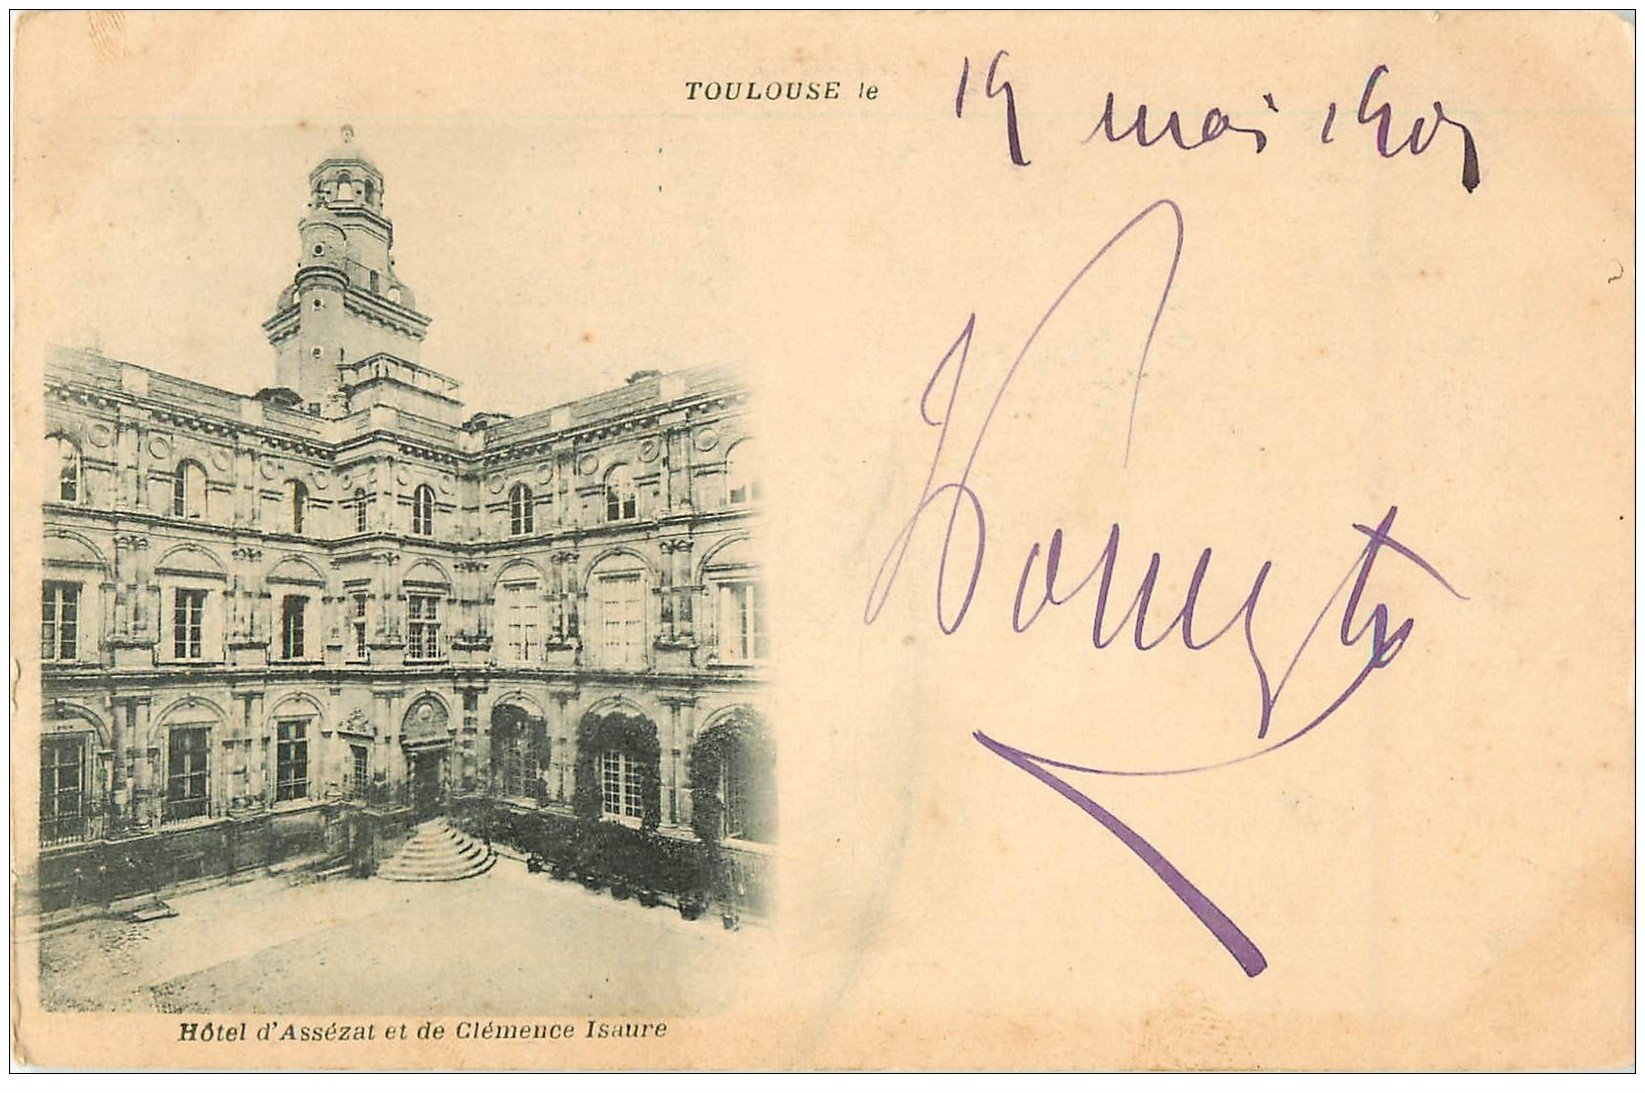 TOULOUSE le 19 mai 1901
Hôtel d'Assézat et de Clémence Isaure